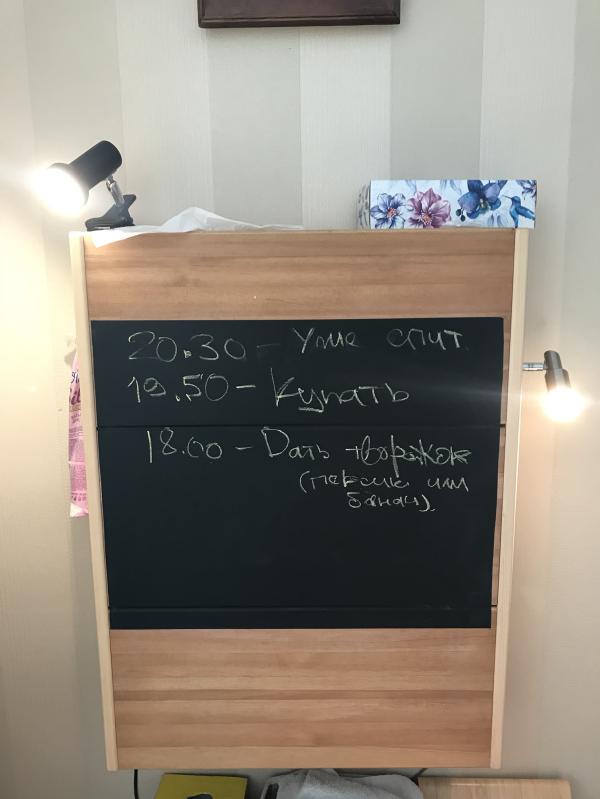 20.30 - Уже спит
19.50 - Купать
18.00 - Дать творожок
(персик или
банан).